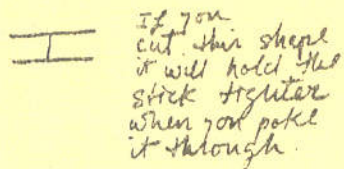 If you
cut this shape
it will hold the
stick tighter
when you poke
it through.